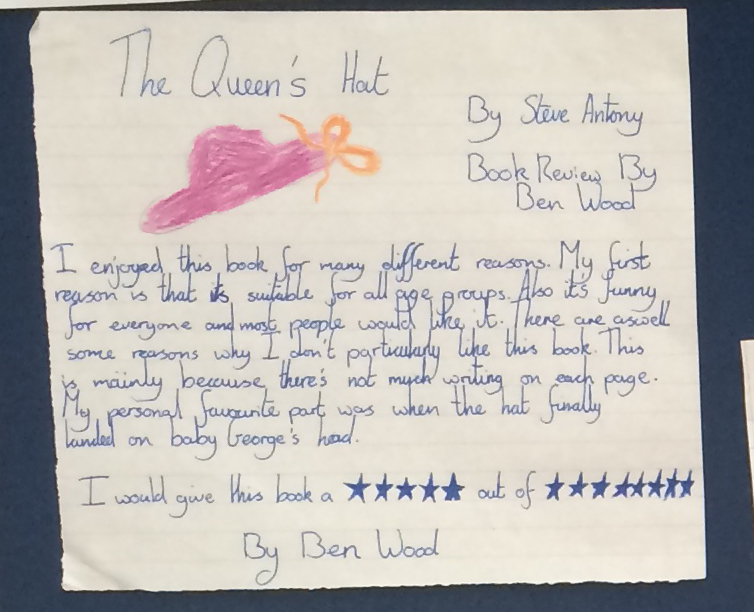 The Queen's Hat
By Steve Antony
Book Review By
Ben Wood
I enjoyed this book for many different reasons. My first
reason is that its suitable for all age groups. Also it's funny
for everyone and most people would like it. There are aswell
some reasons why I don't particularly like this book. This
is mainly because there's not much writing on each page.
My personal favourite part was when the hat finally
landed on baby George's head.
I would give this book a ★★★★★ out of ★★★★★★★★
By Ben Wood